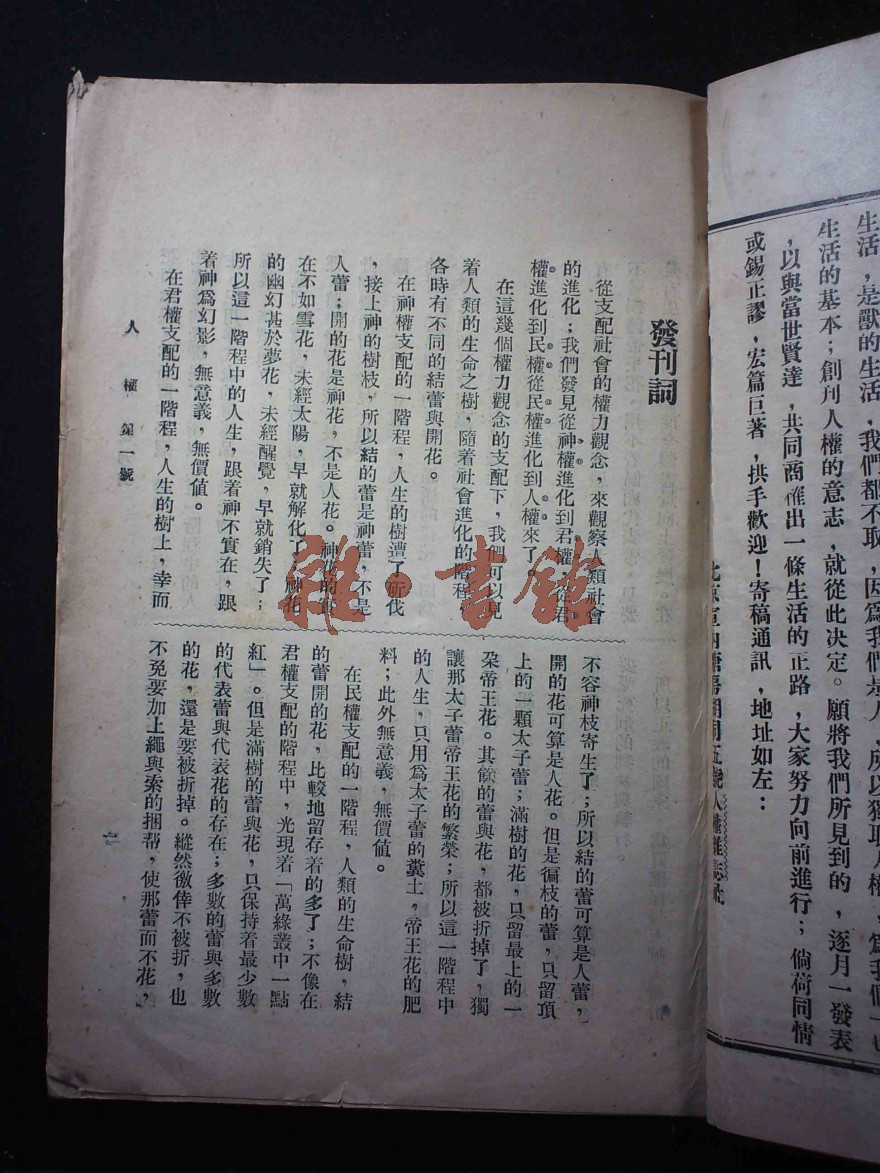 生活，是獸的生活，我們都不取，因爲我們是人，所以獨取人權，爲我們
生活的基本；創刊人權的意志，就從此決定。願將我們所見到的，逐月一發表
，以與當世賢達，共同商榷出一條生活的正路，大家努力向前進行；倘荷同情
或錫正謬，宏篇巨著，拱手歡迎！寄稿通訊，地址如左：
發刊詞
從支配社會的權力觀念，來觀察人類社會
的進化；我們發見從神權進化到君權從君
權進化到民權從民權進化到人權來了
在這幾個權力觀念的支配下，我們可以見
着人類的生命之樹，隨着社會進化的階程
各時有不同的結蕾與開花。
在神權支配的一階程，人生的樹遭了斫伐
，接上神的樹枝，所以結的蕾是神蕾，不是
人蕾；開的花是神花，不是人花。神花的
在不如雪花，未經太陽，早就解化了，神花
的幽幻甚於夢花，未經醒覺，早就銷失了；
所以這一階程中的人生，跟着神不實在，跟
着神爲幻影，無意義，無價值。
在君權支配的一階程，人生的樹上，幸而
不容神枝寄生了；所以結的蕾可算是人蕾，
開的花可算是人花。但是徧枝的蕾，只留頂
上的一顆太子蕾；滿樹的花，只留最上的一
朶帝王花。其餘的蕾與花，都被折掉了，獨
讓那太子蕾帝王花的繁榮；所以這一階程中
的人生，只用爲太子蕾的糞土，帝王花的肥
料；此外無意義，無價值。
在民權支配的一階程，人類的生命樹，結
的蕾開的花，比較地留存着的多了；不像在
君權支配的階程中，光現着「萬綠叢中一點
紅」。但是滿樹的蕾與花，只保持着最少數
的代表蕾與代表花的存在；多數的蕾與多數
的花，還是要被折掉。縱然徼倖不被折，也
不免要加上繩與索的捆帮，使那蕾而不花，
人權 第一號
雜·書館